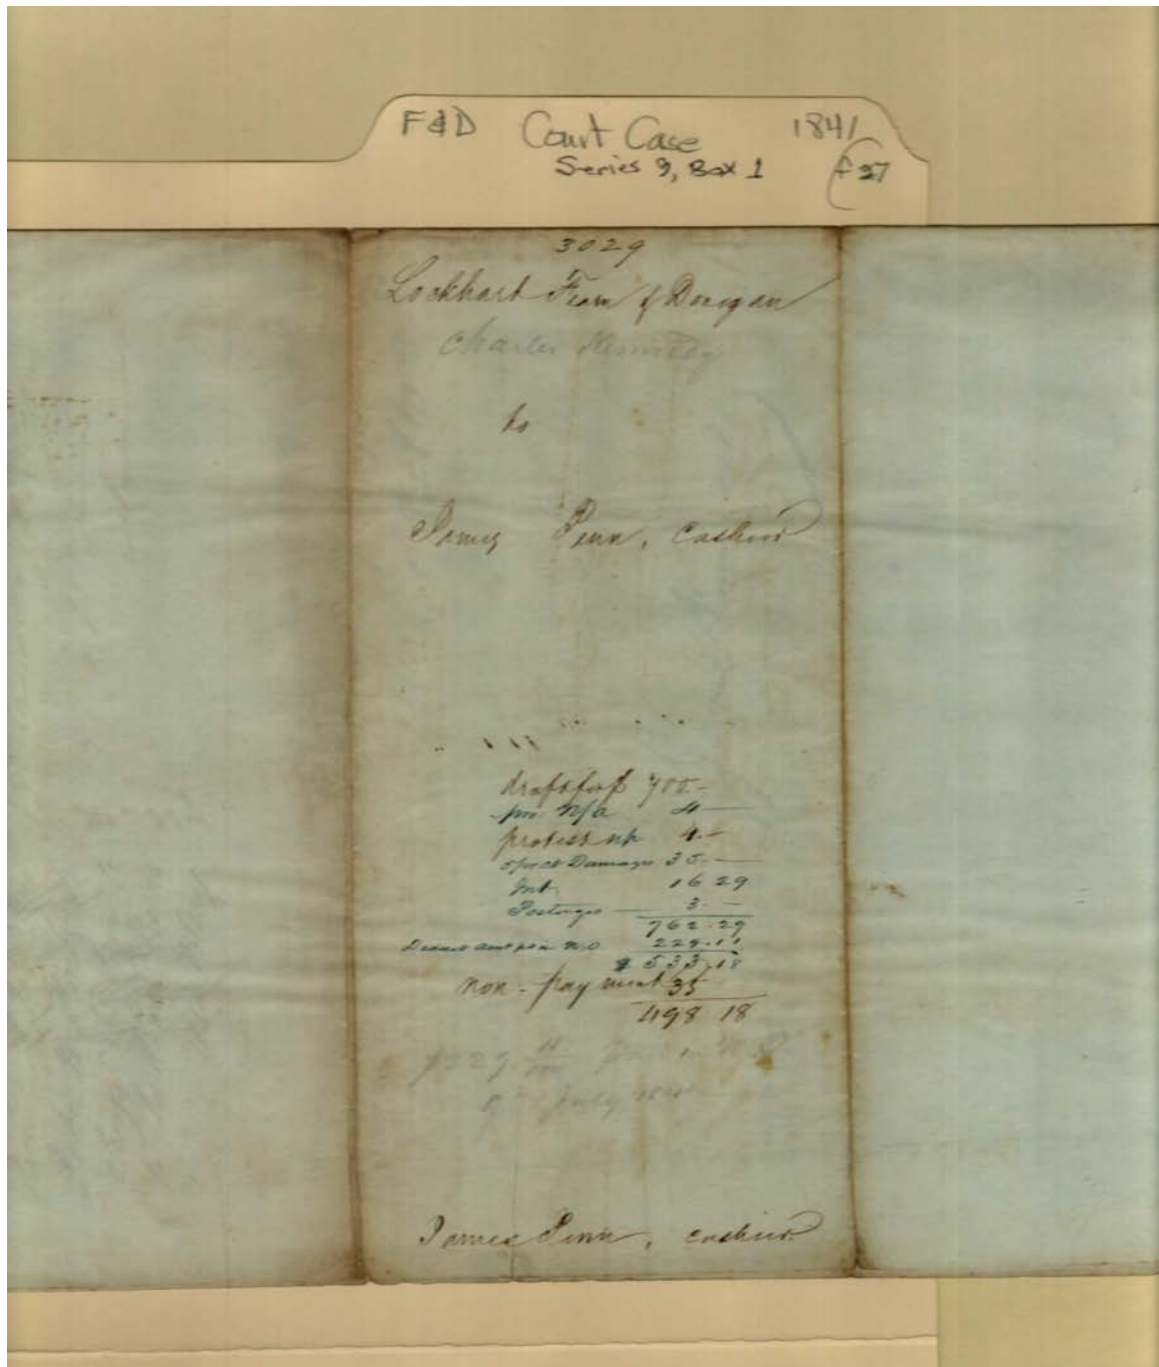 F&D Court Case 1841
Series 9, Box 1 f 27
3029
Lockhart Fearn & Donegan
Charles Kennedy
to
James Penn, cashier
draft for $ 700.-
pro. N/a 4 —
protest np 4.-
5 pr ct Damages 35.—
Int. 16 29
Postages — 3. —
762.29
Deduct amt pd in N.O. 229.11
$ 533.18
non-payment 35
498 18
$229 11/100 in N.O.
8th July
James Penn, cashier